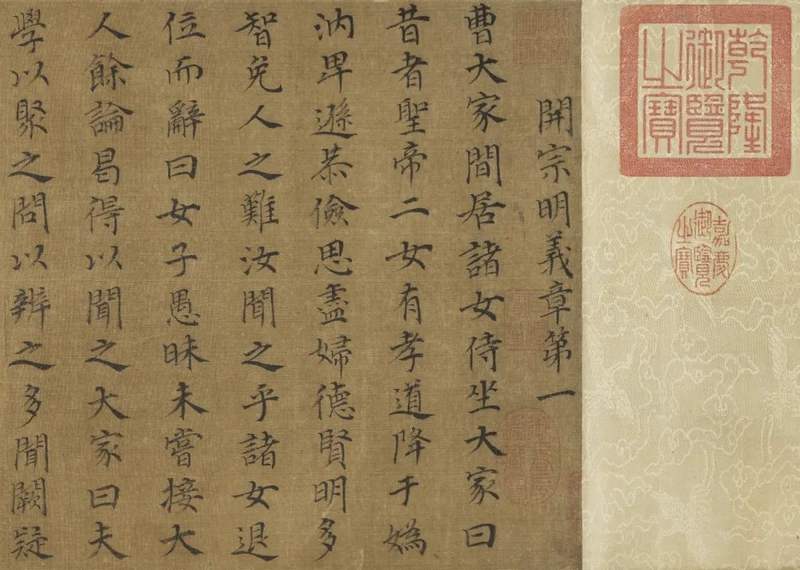 乾隆
御覽
之寶
嘉慶
御覽
之寶
開宗明義章第一
曹大家間居諸女侍坐大家曰
昔者聖帝二女有孝道降于媯
汭卑遜恭儉思盡婦德賢明多
智免人之難汝聞之乎諸女退
位而辭曰女子愚昧未嘗接大
人餘論曷得以聞之大家曰夫
學以聚之問以辨之多聞闕疑